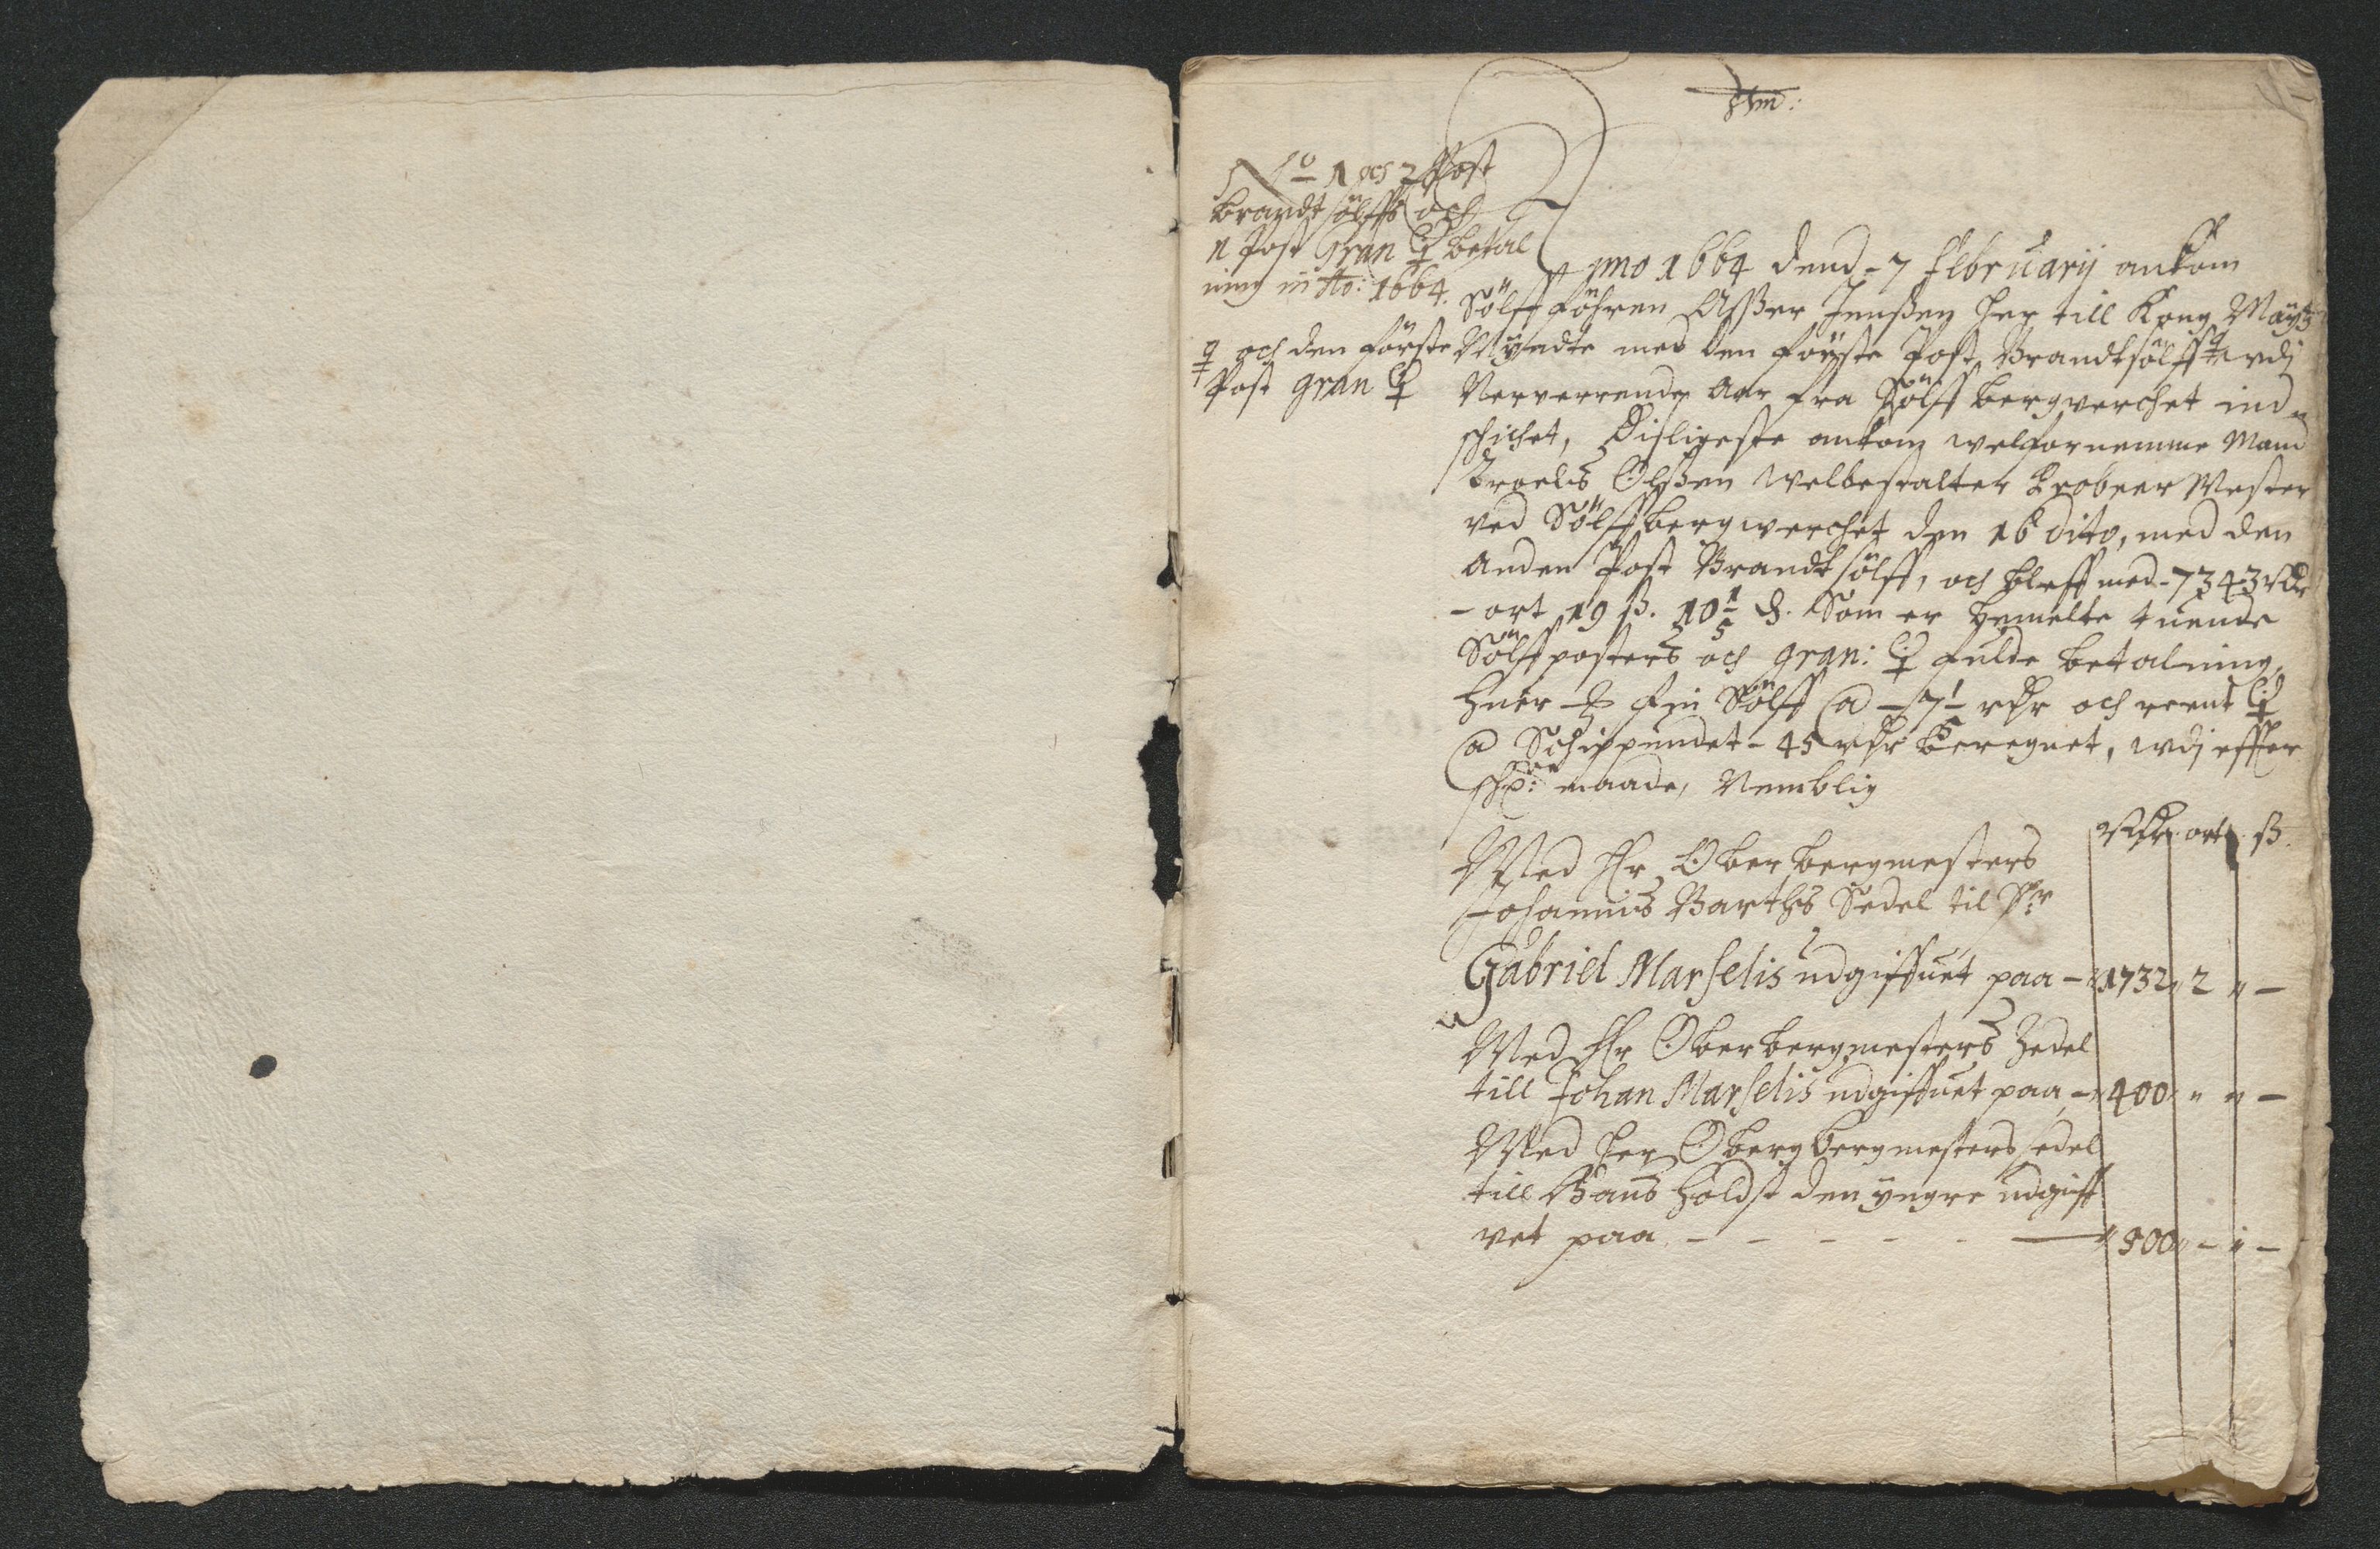 No 1 och 2 Post
Brandt sølffs och
1 Post Gran ♀ betal
ning in Ao: 1664.
♀ och den første
Post gran ♀
Anno 1664 dend 7 Februarij ankom
Sølff föhren Asser Jenßen her till Kong Maytz
Myndte med den første Post Brandtsølff udj
Nerverrende Aar fra Sølff bergverchet ind
schichet, Disligeste ankom welfornemme Mand
Troels Olßen welbestalter Probeer Mester
ved Sølffbergwerchet den 16 dito, med den
anden Post Brandt sølff, och bleff med 7343 Rdr
- ort 19 ß. 10 1/5 ₰. Som er bemelte tuende
Sølff posters och gran: ♀ fulde betalning,
huer fin Sølff @ 7 1/ rdr och reent ♀
@ Schippundet 45 rdr beregnet, udj effter
schr: maade, Nemblig
Rdr. ort. ß.
Med Hr Oberbergmesters
Johannis Barths Sedel til Hr
Gabriel Marselis udgiffuet paa - 1732 " 2 " -
Med Hr Oberbergmesters Zedel
till Johan Marselis udgiffuet paa - 400 " " -
Med Her Oberg bergmesters sedel
till Hans Holdst den yngre udgiff
vet paa - - - - - 500 " - " -